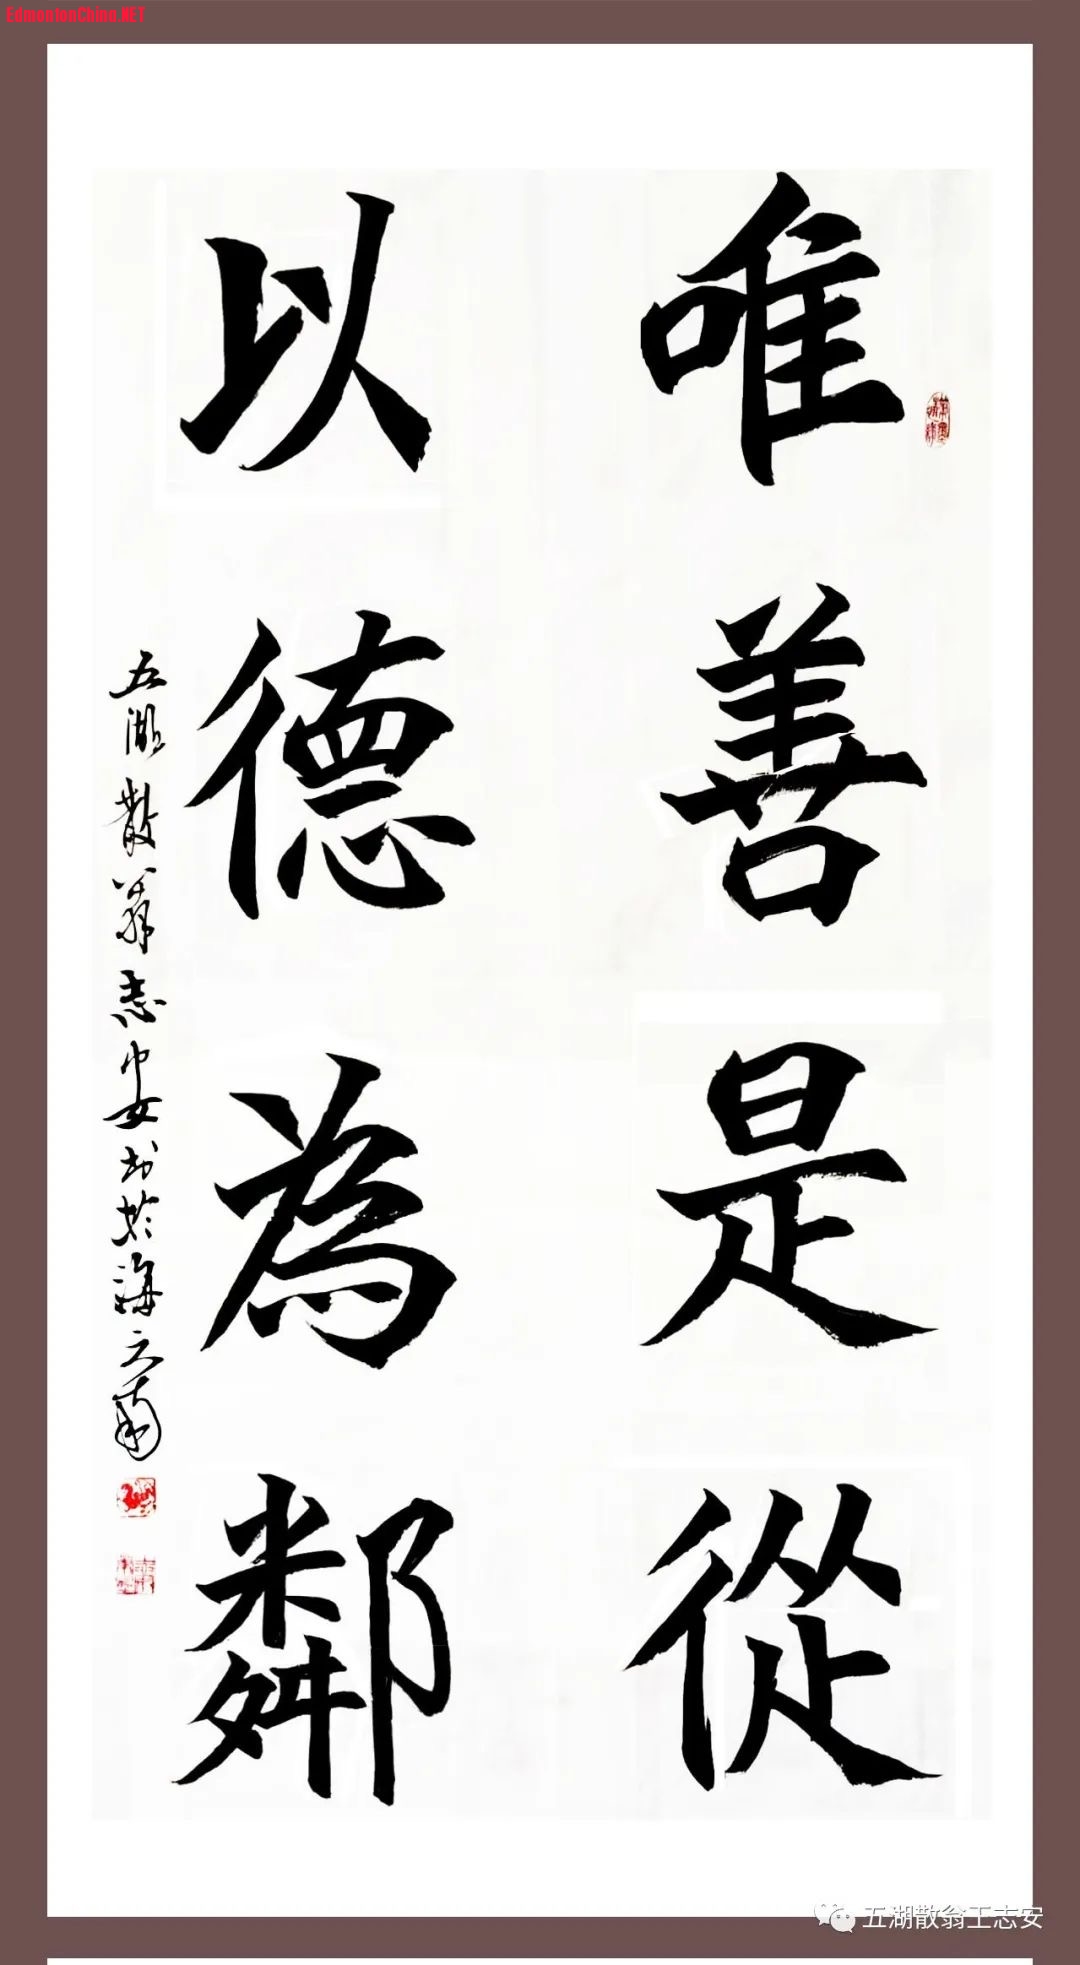 EdmontonChina.NET
唯善是從
以德為鄰
五湖散翁志安书於海之南
五湖散翁王志安